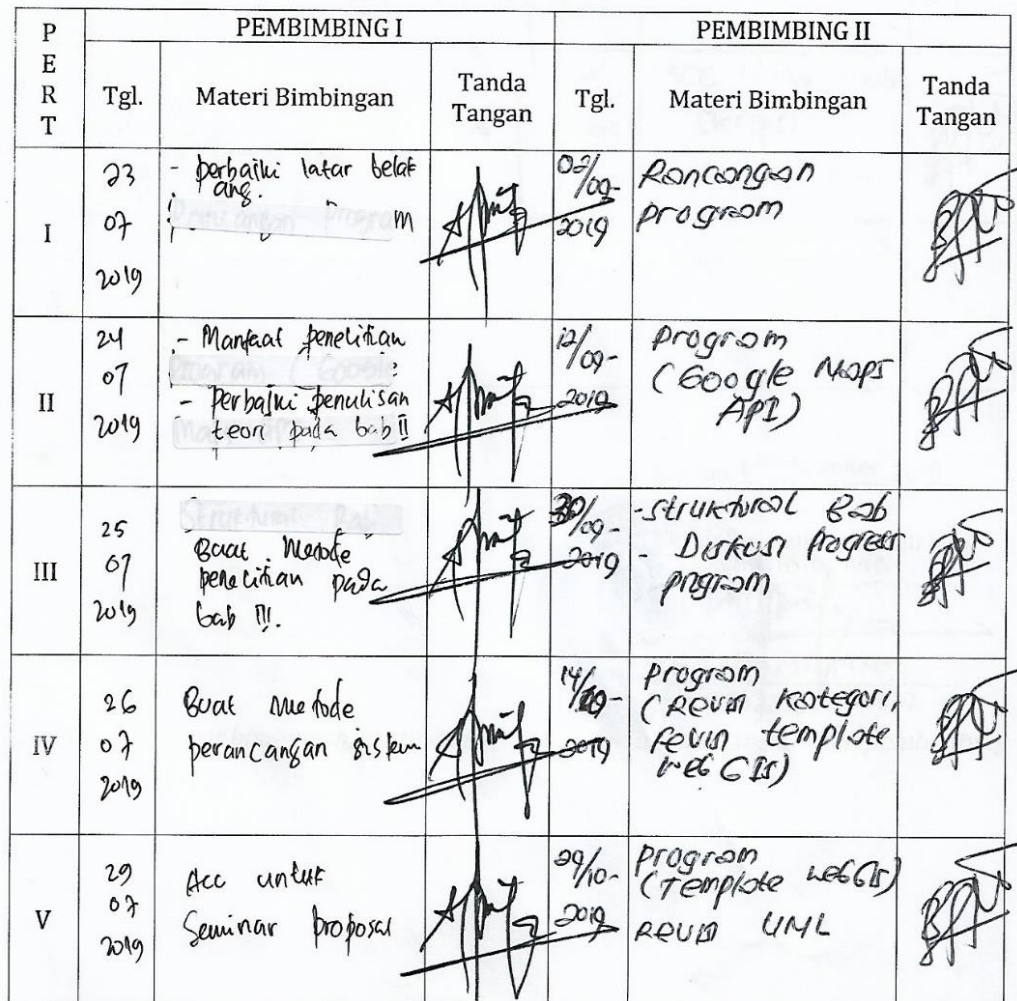 PERT
PEMBIMBING I
PEMBIMBING II
Tgl.
Materi Bimbingan
Tanda
Tangan
Tgl.
Materi Bimbingan
Tanda
Tangan
I
23
07
2019
- perbaiki latar belak
ang.
m
02/09-
2019
Rancangan
program
II
24
07
2019
- Manfaat penelitian
- Perbaiki penulisan
teori pada bab II
12/09-
2019
program
(Google Maps
API)
III
25
07
2019
Buat Metode
penelitian pada
bab III.
30/09-
2019
- struktural Bab
- Diskusi progress
program
IV
26
07
2019
Buat Metode
perancangan sistem
14/10-
2019
program
(Revisi Kategori,
revisi template
web GIS)
V
29
07
2019
Acc untuk
Seminar proposal
29/10-
2019
program
(Template web GIS)
Revisi UML